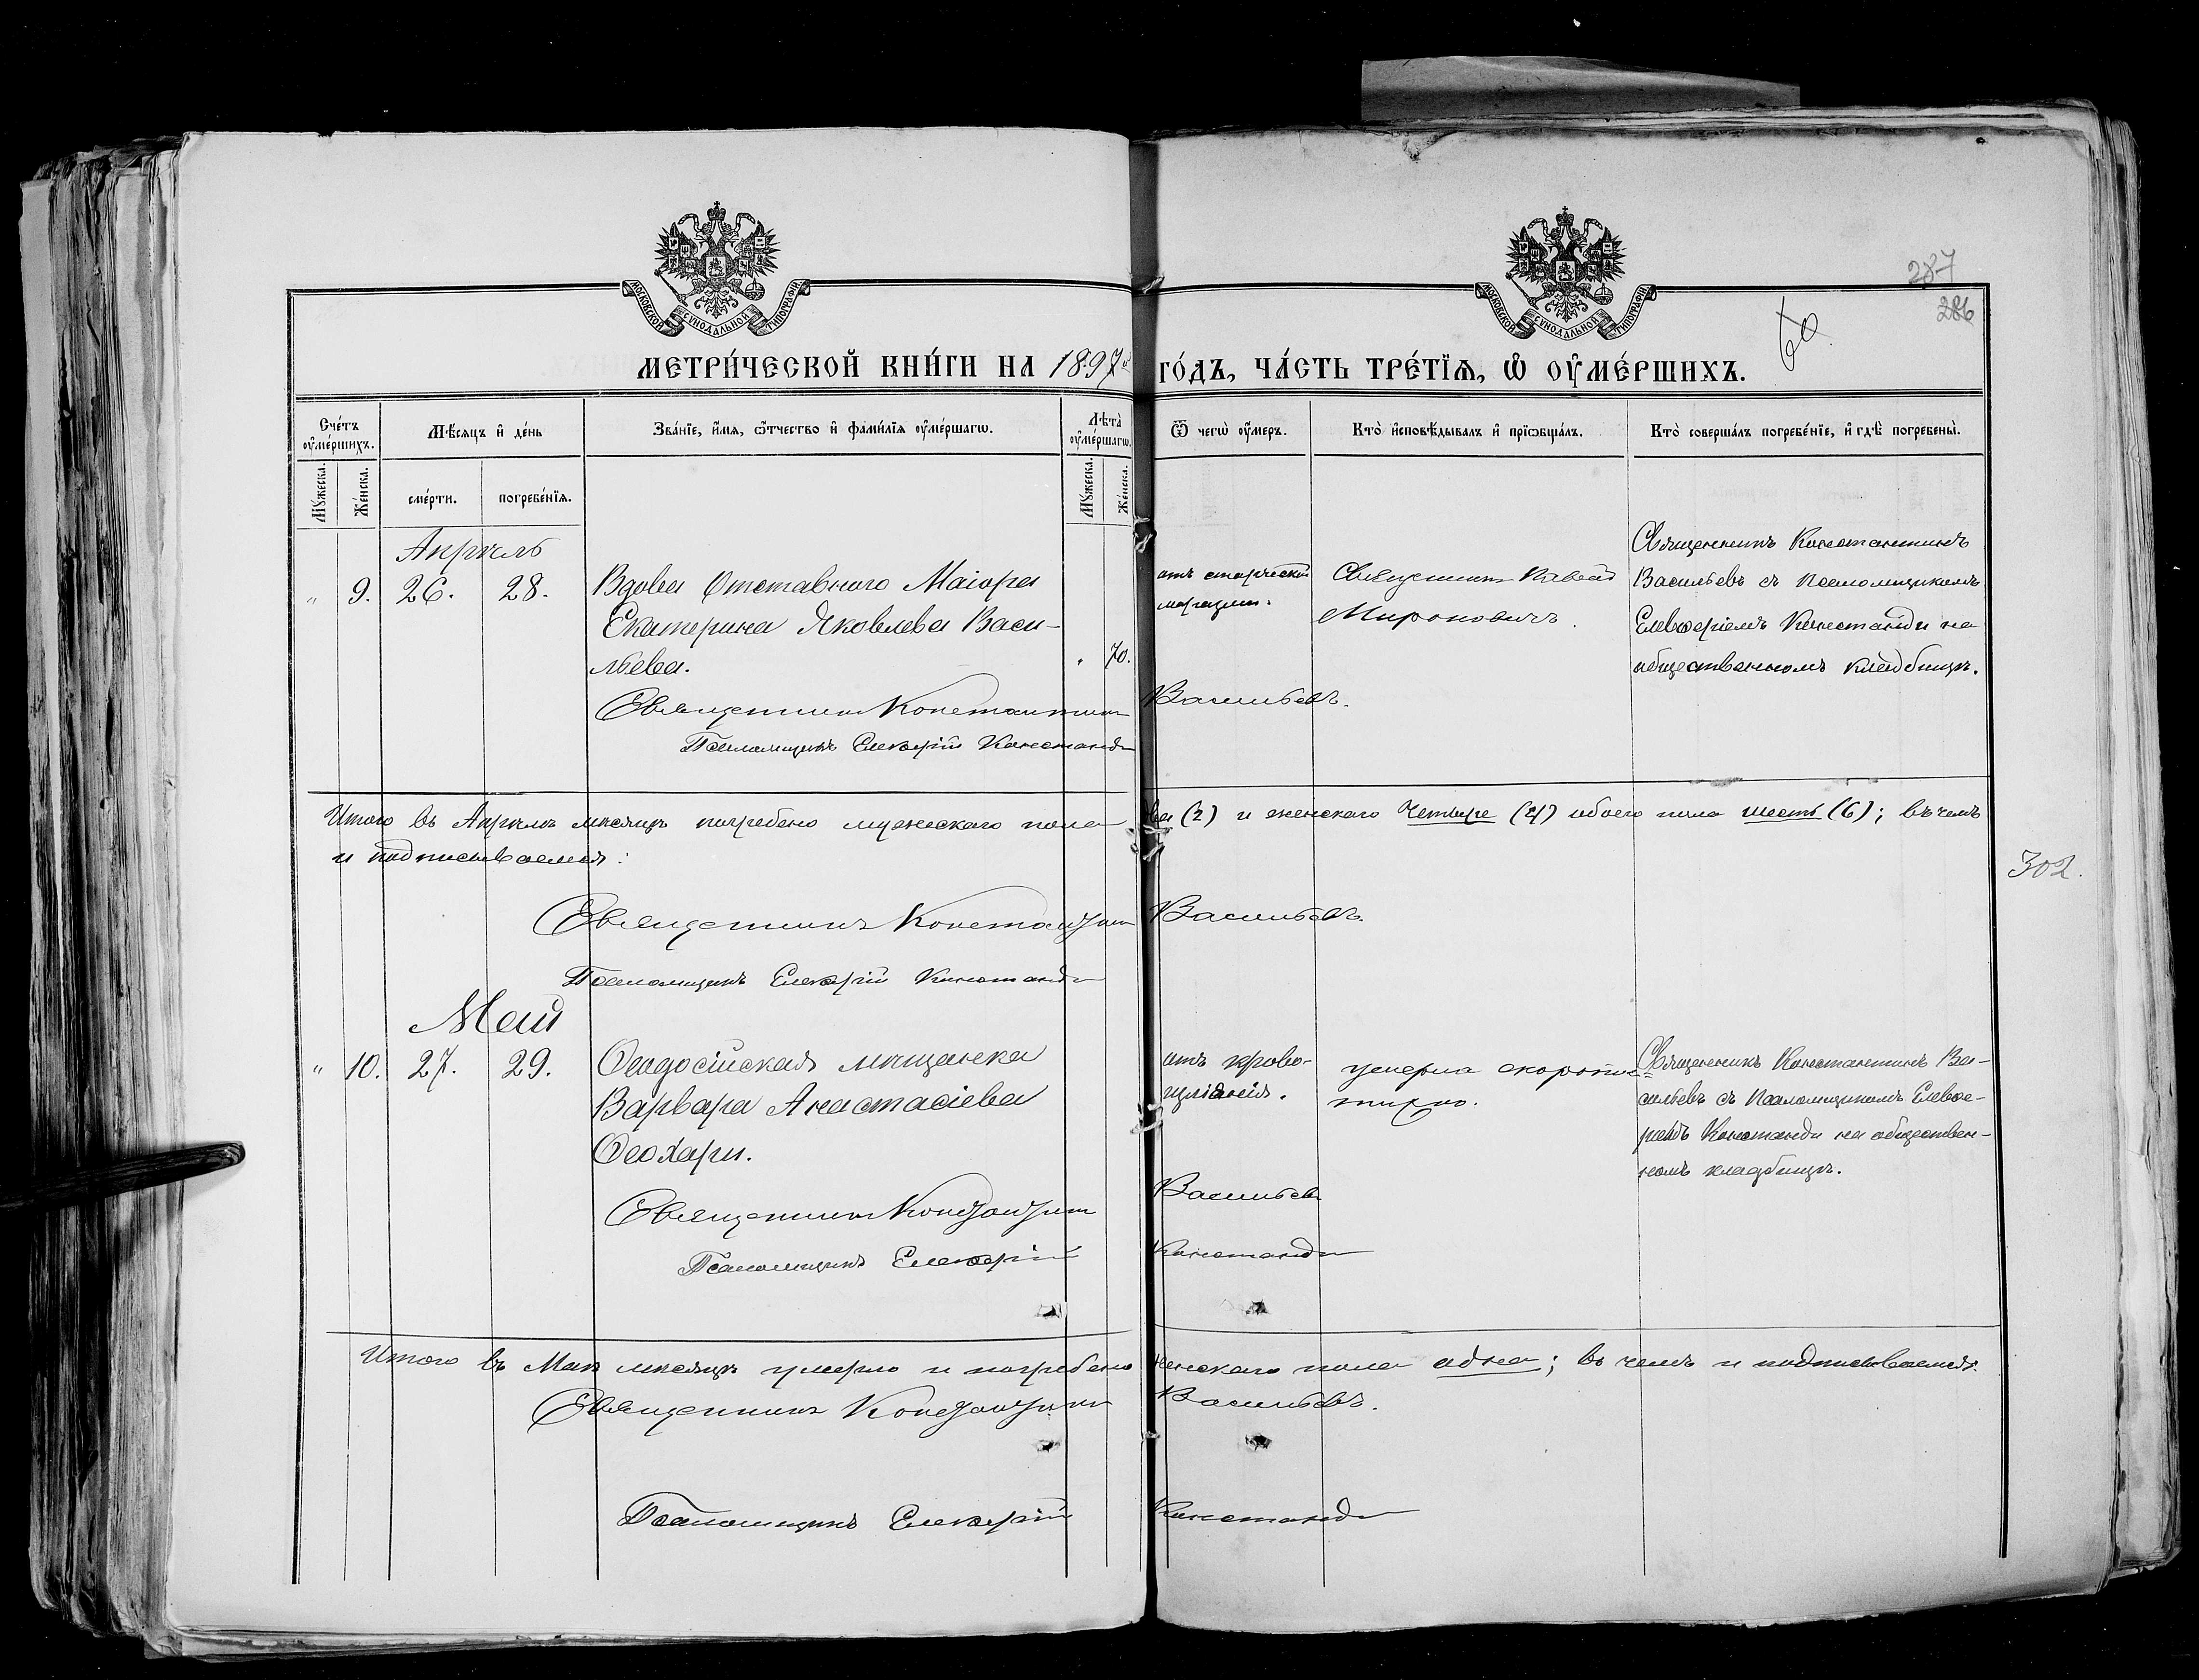 МОСКОВСКОЙ СѴНОДАЛЬНОЙ ТИПОГРАФІИ
МОСКОВСКОЙ СѴНОДАЛЬНОЙ ТИПОГРАФІИ
287
286
60
МЕТРИ́ЧЕСКОЙ КНИ́ГИ НА 1897й ГО́ДЪ, ЧА́СТЬ ТРЕ́ТЇѦ, Ѡ҆ ОУ҆МЕ́РШИХЪ.
Сче́тъ оу҆ме́ршихъ.
Мѣ́сѧцъ и҆ де́нь
Зва́нїе, и҆́мѧ, ѻ҆́тчество и҆ фами́лїѧ оу҆ме́ршагѡ.
Лѣ́та оу҆ме́ршагѡ.
Ѿ чегѡ̀ оу҆́меръ.
Кто̀ и҆сповѣ́дывалъ и҆ прїѡбща́лъ.
Кто̀ соверша́лъ погребе́нїе, и҆ гдѣ̀ погребены̀.
Мꙋ́жеска.
Же́нска.
сме́рти.
погребе́нїѧ.
Мꙋ́жеска.
Же́нска.
Апрѣль
„ 9. 26. 28.
Вдова Отставного Маіора
Екатерина Яковлева Васи-
льева.
„ 70.
отъ старческой
Священникъ Павелъ
Миронович.
Священникъ Константинъ
Васильевъ съ псаломщикомъ
Елевферіемъ Констанди на
общественномъ кладбищѣ.
Священникъ Константинъ Васильевъ.
Псаломщикъ Елевферій Констанди
Итого въ Апрѣлѣ мѣсяцѣ погребено мужескаго пола два (2) и женскаго четыре (4) обоего пола шесть (6); въ чемъ
и подписываемся:
302.
Священникъ Константинъ Васильевъ.
Псаломщикъ Елевферій Констанди
Май
„ 10. 27. 29.
Ѳеодосійская мѣщанка
Варвара Анастасіева
Ѳеохари.
отъ крово-
умерла скоропос-
тижно.
Священникъ Константинъ Ва-
сильевъ съ Псаломщикомъ Елевфе-
ріемъ Констанди на обществен-
номъ кладбищѣ.
Священникъ Константинъ Васильевъ
Псаломщикъ Елевферій Констанди
Итого въ Маѣ мѣсяцѣ умерло и погребено женскаго пола одна; въ чемъ и подписываемся.
Священникъ Константинъ Васильевъ.
Псаломщикъ Елевферій Констанди